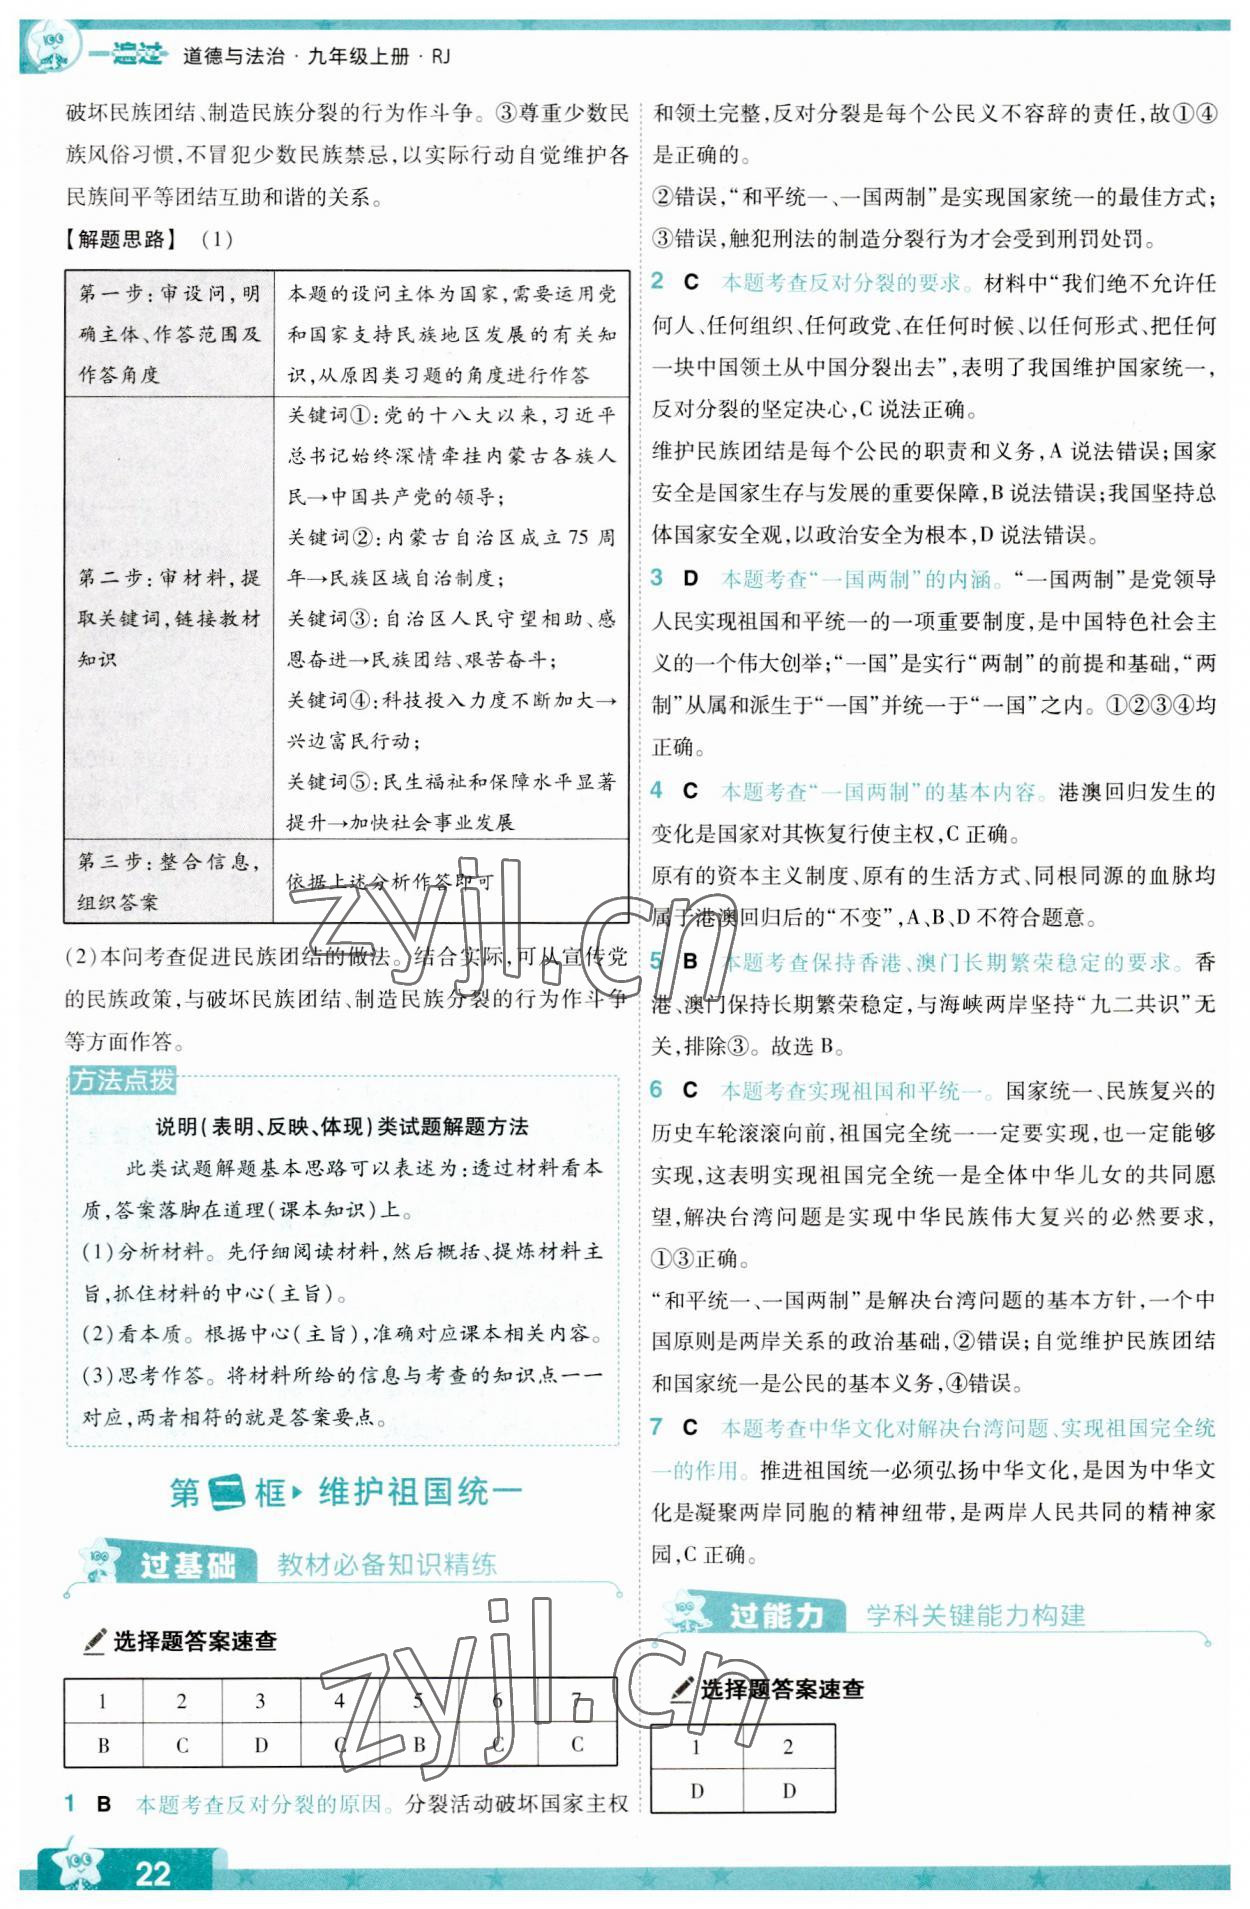 一遍过 道德与法治·九年级上册·RJ
破坏民族团结、制造民族分裂的行为作斗争。③尊重少数民
族风俗习惯,不冒犯少数民族禁忌,以实际行动自觉维护各
民族间平等团结互助和谐的关系。
【解题思路】 (1)
第一步:审设问,明
确主体、作答范围及
作答角度
本题的设问主体为国家,需要运用党
和国家支持民族地区发展的有关知
识,从原因类习题的角度进行作答
第二步:审材料,提
取关键词,链接教材
知识
关键词①:党的十八大以来,习近平
总书记始终深情牵挂内蒙古各族人
民→中国共产党的领导;
关键词②:内蒙古自治区成立 75 周
年→民族区域自治制度;
关键词③:自治区人民守望相助、感
恩奋进→民族团结、艰苦奋斗;
关键词④:科技投入力度不断加大→
兴边富民行动;
关键词⑤:民生福祉和保障水平显著
提升→加快社会事业发展
第三步:整合信息,
组织答案
依据上述分析作答即可
(2)本问考查促进民族团结的做法。结合实际,可从宣传党
的民族政策,与破坏民族团结、制造民族分裂的行为作斗争
等方面作答。
方法点拨
说明(表明、反映、体现)类试题解题方法
此类试题解题基本思路可以表述为:透过材料看本
质,答案落脚在道理(课本知识)上。
(1)分析材料。先仔细阅读材料,然后概括、提炼材料主
旨,抓住材料的中心(主旨)。
(2)看本质。根据中心(主旨),准确对应课本相关内容。
(3)思考作答。将材料所给的信息与考查的知识点一一
对应,两者相符的就是答案要点。
第二框 维护祖国统一
过基础 教材必备知识精练
选择题答案速查
1 2 3 4 5 6 7
B C D C B C C
1 B 本题考查反对分裂的原因。分裂活动破坏国家主权
和领土完整,反对分裂是每个公民义不容辞的责任,故①④
是正确的。
②错误,“和平统一、一国两制”是实现国家统一的最佳方式;
③错误,触犯刑法的制造分裂行为才会受到刑罚处罚。
2 C 本题考查反对分裂的要求。材料中“我们绝不允许任
何人、任何组织、任何政党、在任何时候、以任何形式、把任何
一块中国领土从中国分裂出去”,表明了我国维护国家统一,
反对分裂的坚定决心,C 说法正确。
维护民族团结是每个公民的职责和义务,A 说法错误;国家
安全是国家生存与发展的重要保障,B 说法错误;我国坚持总
体国家安全观,以政治安全为根本,D 说法错误。
3 D 本题考查“一国两制”的内涵。“一国两制”是党领导
人民实现祖国和平统一的一项重要制度,是中国特色社会主
义的一个伟大创举;“一国”是实行“两制”的前提和基础,“两
制”从属和派生于“一国”并统一于“一国”之内。①②③④均
正确。
4 C 本题考查“一国两制”的基本内容。港澳回归发生的
变化是国家对其恢复行使主权,C 正确。
原有的资本主义制度、原有的生活方式、同根同源的血脉均
属于港澳回归后的“不变”,A、B、D 不符合题意。
5 B 本题考查保持香港、澳门长期繁荣稳定的要求。香
港、澳门保持长期繁荣稳定,与海峡两岸坚持“九二共识”无
关,排除③。故选 B。
6 C 本题考查实现祖国和平统一。国家统一、民族复兴的
历史车轮滚滚向前,祖国完全统一一定要实现,也一定能够
实现,这表明实现祖国完全统一是全体中华儿女的共同愿
望,解决台湾问题是实现中华民族伟大复兴的必然要求,
①③正确。
“和平统一、一国两制”是解决台湾问题的基本方针,一个中
国原则是两岸关系的政治基础,②错误;自觉维护民族团结
和国家统一是公民的基本义务,④错误。
7 C 本题考查中华文化对解决台湾问题、实现祖国完全统
一的作用。推进祖国统一必须弘扬中华文化,是因为中华文
化是凝聚两岸同胞的精神纽带,是两岸人民共同的精神家
园,C 正确。
过能力 学科关键能力构建
选择题答案速查
1 2
D D
22
zyjl.cn
zyjl.cn